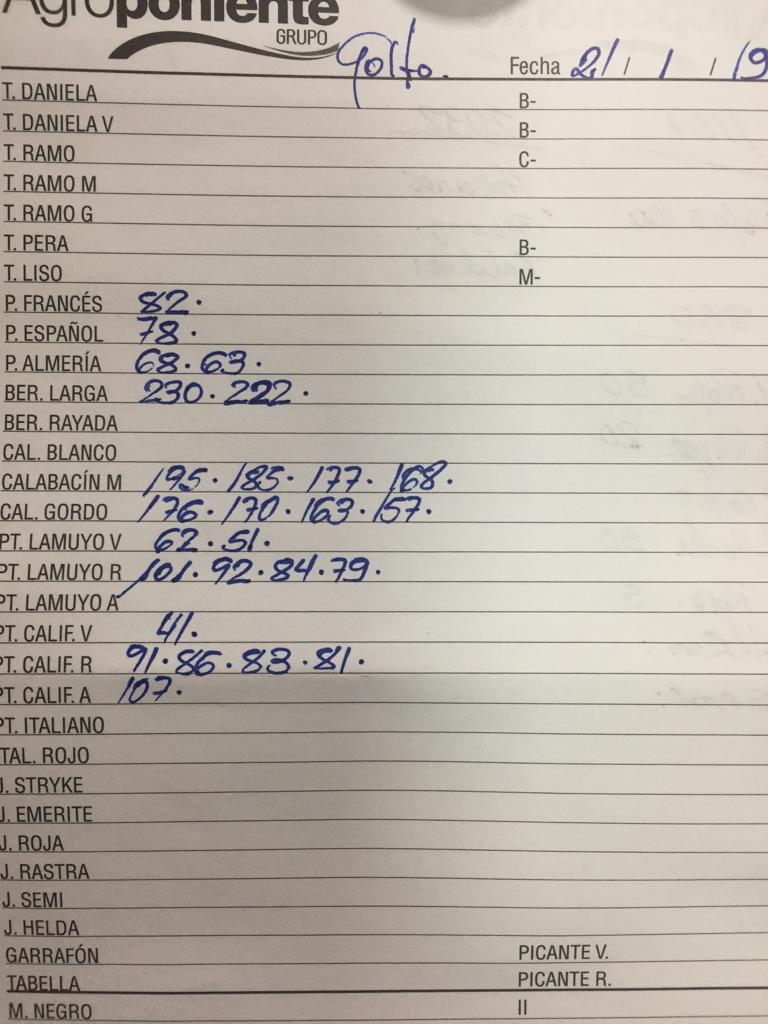 Agroponiente
GRUPO
Golfo. Fecha 21 / 1 / 19
T. DANIELA B-
T. DANIELA V B-
T. RAMO C-
T. RAMO M
T. RAMO G
T. PERA B-
T. LISO M-
P. FRANCÉS 82.
P. ESPAÑOL 78.
P. ALMERÍA 68. 63.
BER. LARGA 230. 222.
BER. RAYADA
CAL. BLANCO
CALABACÍN M 195. 185. 177. 168.
CAL. GORDO 176. 170. 163. 157.
PT. LAMUYO V 62. 51.
PT. LAMUYO R 101. 92. 84. 79.
PT. LAMUYO A
PT. CALIF. V 41.
PT. CALIF. R 91. 86. 83. 81.
PT. CALIF. A 107.
PT. ITALIANO
TAL. ROJO
J. STRYKE
J. EMERITE
J. ROJA
J. RASTRA
J. SEMI
J. HELDA
GARRAFÓN PICANTE V.
TABELLA PICANTE R.
M. NEGRO II